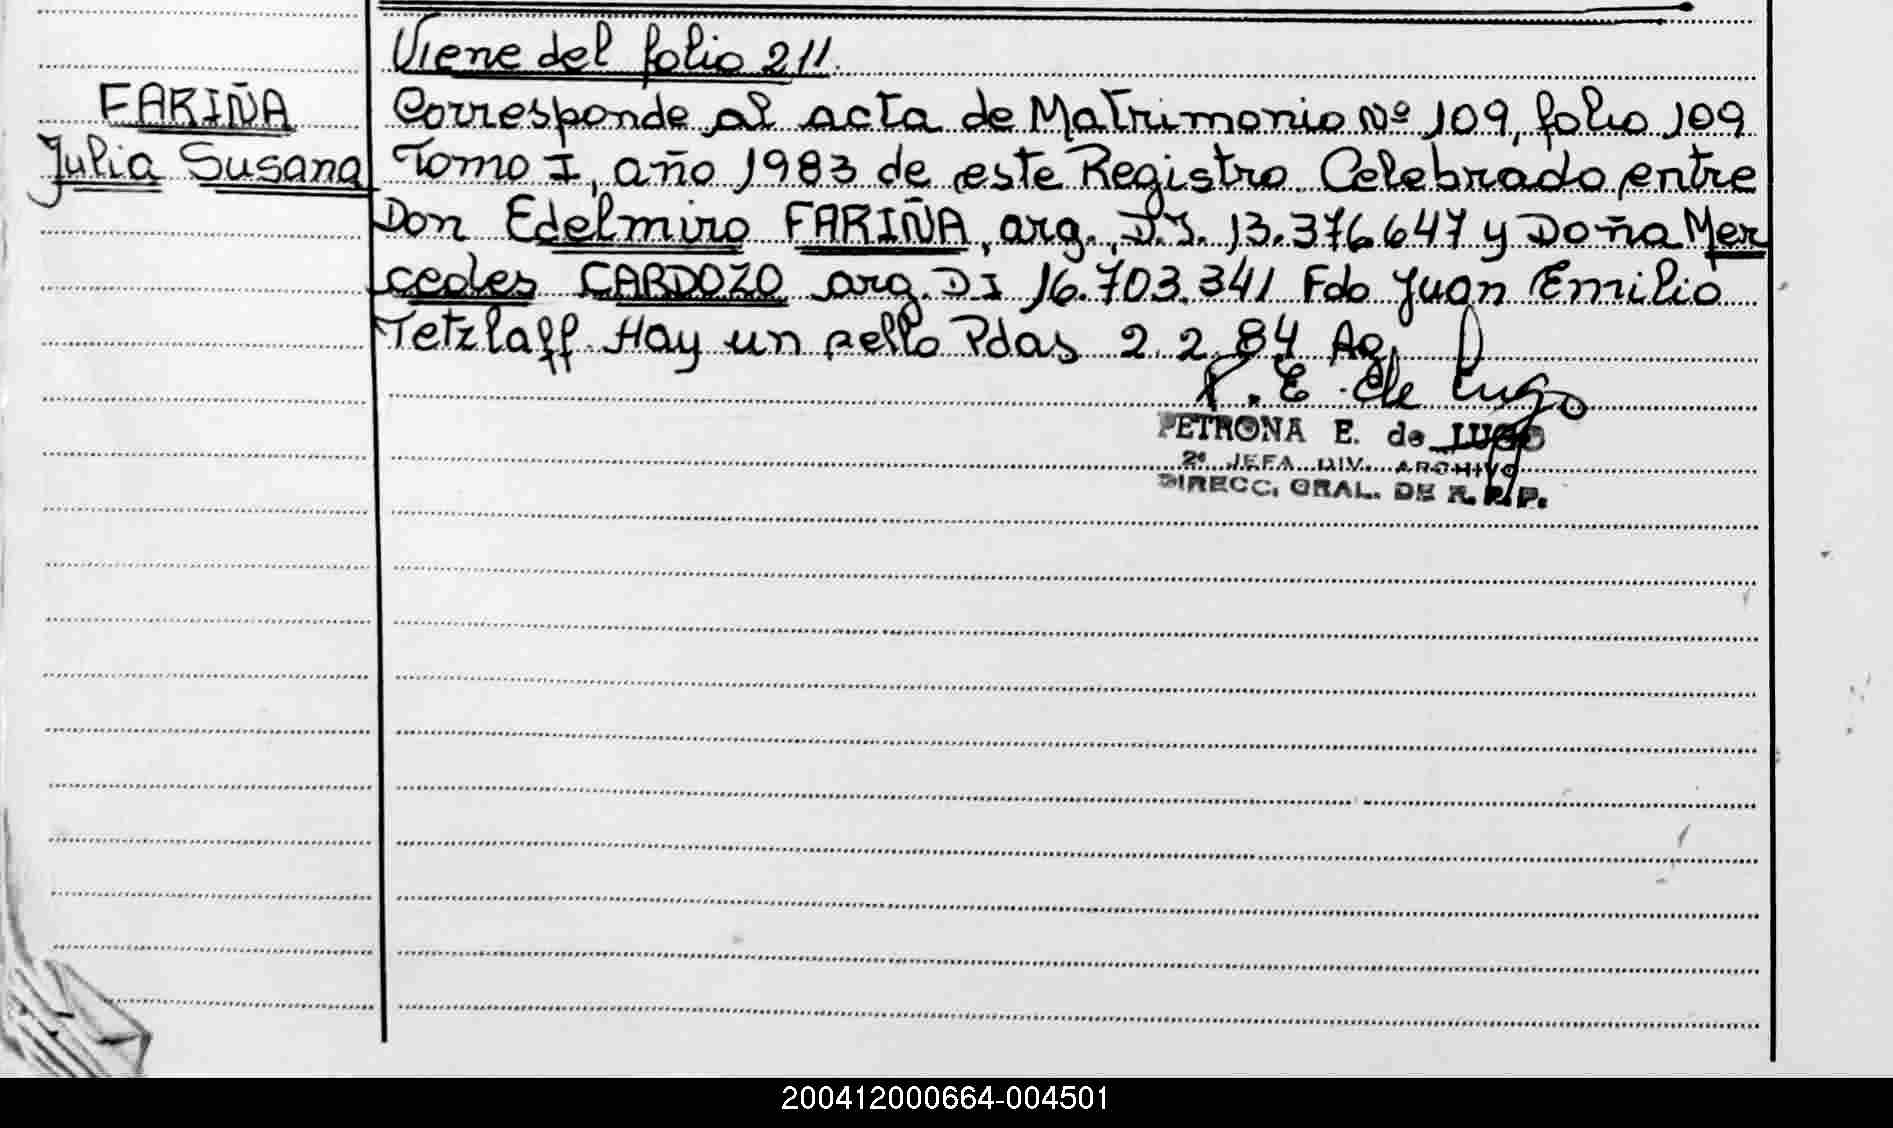 Viene del folio 211.
FARIÑA
Julia Susana
Corresponde al acta de Matrimonio Nº 109, folio 109
Tomo I, año 1983 de este Registro. Celebrado entre
Don Edelmiro FARIÑA, arg., D.I. 13.376.647 y Doña Mer
cedes CARDOZO arg. DI 16.703.341 Fdo Juan Emilio
Tetzlaff. Hay un sello Pdas 2.2.84 Ag.
P. E. de Lugo
PETRONA E. de LUGO
2º JEFA DIV. ARCHIVO
DIRECC. GRAL. DE R. P. P.
200412000664-004501